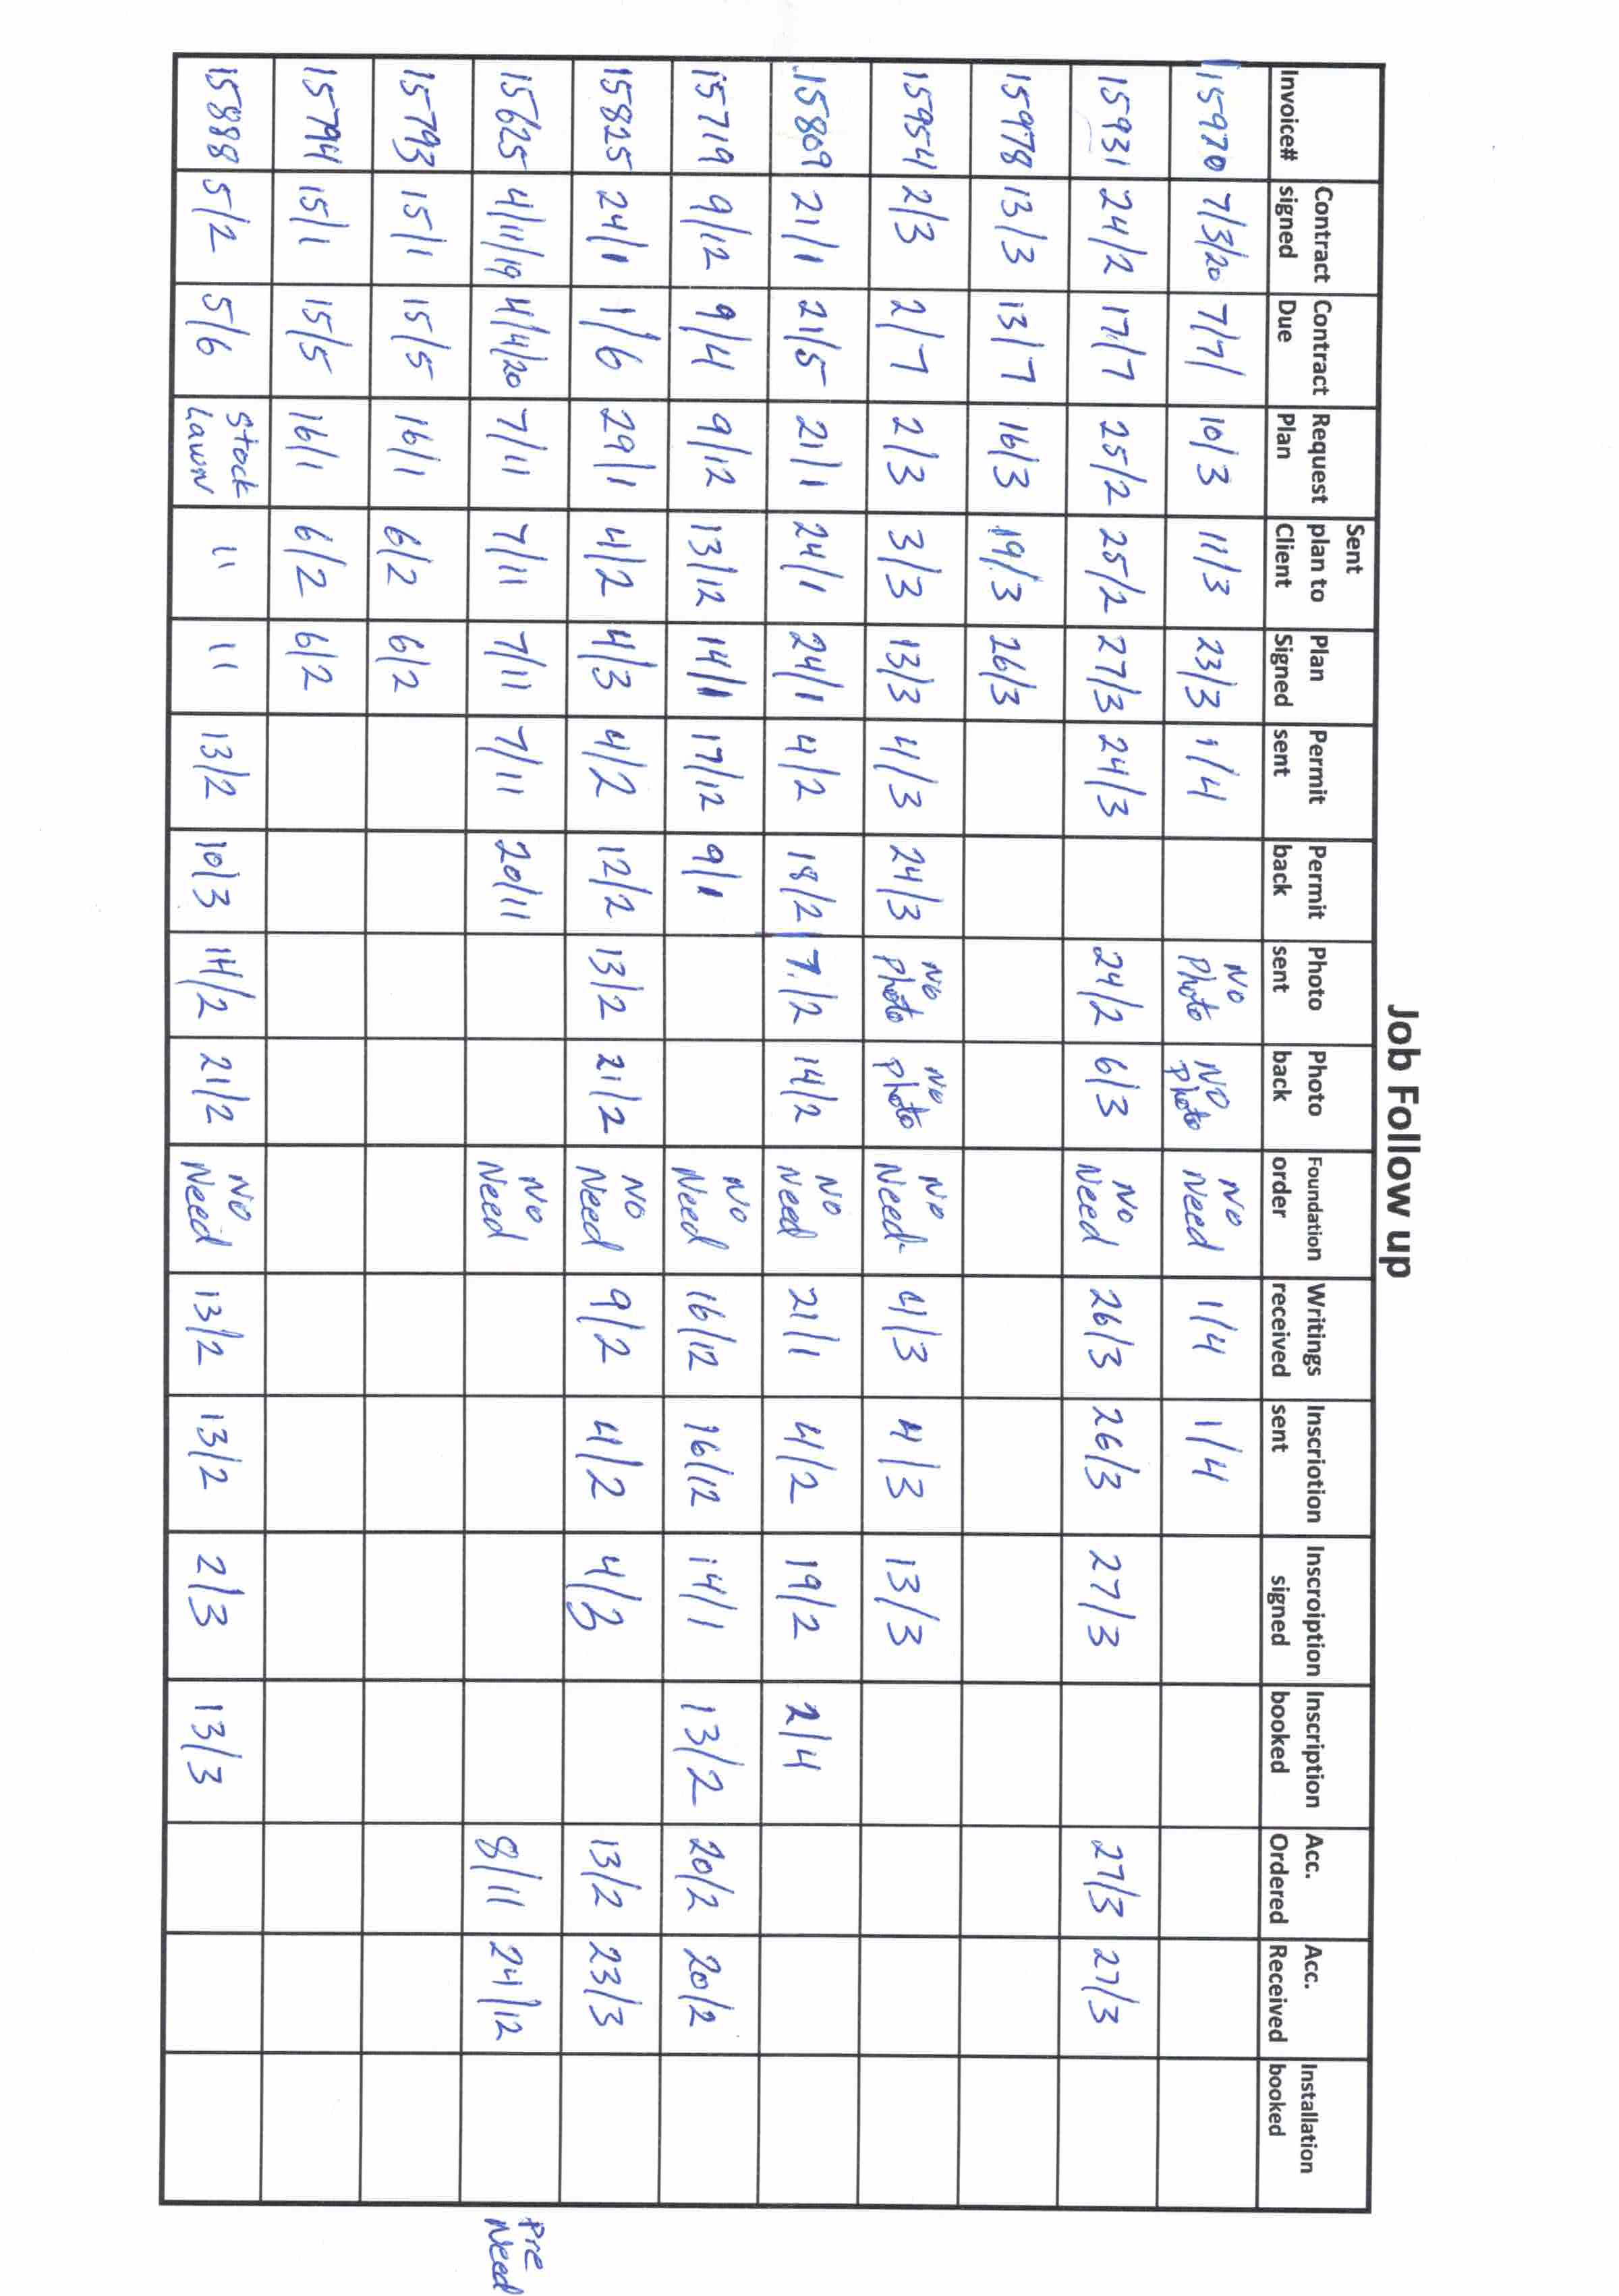 Job Follow up
Invoice# Contract signed Contract Due Request Plan Sent plan to Client Plan Signed Permit sent Permit back Photo sent Photo back Foundation order Writings received Inscriotion sent Inscroiption signed Inscription booked Acc. Ordered Acc. Received Installation booked
15970 7/3/20 7/7/ 10/3 11/3 23/3 1/4 NO Photo NO Photo NO Need 1/4 1/4
15931 24/2 17/7 25/2 25/2 27/3 24/3 24/2 6/3 NO Need 26/3 26/3 27/3 27/3 27/3
15978 13/3 13/7 16/3 19/3 26/3
15954 2/3 2/7 2/3 3/3 13/3 4/3 24/3 NO Photo NO photo NO Need 4/3 4/3 13/3
15809 21/1 21/5 21/1 24/1 24/1 4/2 18/2 7/2 14/2 NO Need 21/1 4/2 19/2 2/4
15719 9/12 9/4 9/12 13/12 14/1 17/12 9/1 NO Need 16/12 16/12 14/1 13/2 20/2 20/2
15825 24/1 1/6 29/1 4/2 4/3 4/2 12/2 13/2 21/2 NO Need 9/2 4/2 4/3 13/2 23/3
15625 4/11/19 4/4/20 7/11 7/11 7/11 7/11 20/11 NO Need 8/11 24/12 Pre Need
15793 15/1 15/5 16/1 6/2 6/2
15794 15/1 15/5 16/1 6/2 6/2
15888 5/2 5/6 Stock Lawn 11 11 13/2 10/3 14/2 21/2 NO Need 13/2 13/2 2/3 13/3